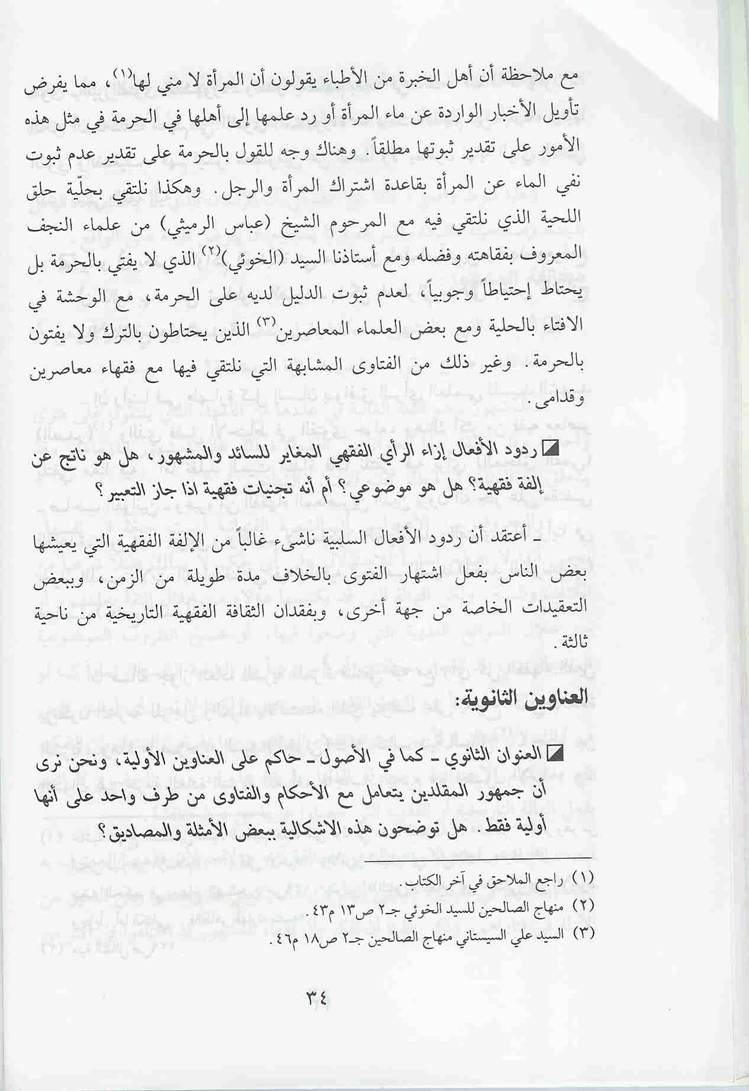 مع ملاحظة أن أهل الخبرة من الأطباء يقولون أن المرأة لا مني لها(١)، مما يفرض
تأويل الأخبار الواردة عن ماء المرأة أو رد علمها إلى أهلها في الحرمة في مثل هذه
الأمور على تقدير ثبوتها مطلقاً. وهناك وجه للقول بالحرمة على تقدير عدم ثبوت
نفي الماء عن المرأة بقاعدة اشتراك المرأة والرجل. وهكذا نلتقي بحلّية حلق
اللحية الذي نلتقي فيه مع المرحوم الشيخ (عباس الرميثي) من علماء النجف
المعروف بفقاهته وفضله ومع أستاذنا السيد (الخوئي)(٢) الذي لا يفتي بالحرمة بل
يحتاط إحتياطاً وجوبياً، لعدم ثبوت الدليل لديه على الحرمة، مع الوحشة في
الافتاء بالحلية ومع بعض العلماء المعاصرين(٣) الذين يحتاطون بالترك ولا يفتون
بالحرمة. وغير ذلك من الفتاوى المشابهة التي نلتقي فيها مع فقهاء معاصرين
وقدامى.
ردود الأفعال إزاء الرأي الفقهي المغاير للسائد والمشهور، هل هو ناتج عن
إلفة فقهية؟ هل هو موضوعي؟ أم أنه تجنيات فقهية اذا جاز التعبير؟
ـ أعتقد أن ردود الأفعال السلبية ناشىء غالباً من الإلفة الفقهية التي يعيشها
بعض الناس بفعل اشتهار الفتوى بالخلاف مدة طويلة من الزمن، وببعض
التعقيدات الخاصة من جهة أخرى، وبفقدان الثقافة الفقهية التاريخية من ناحية
ثالثة.
العناوين الثانوية:
العنوان الثانوي ـ كما في الأصول ـ حاكم على العناوين الأولية، ونحن نرى
أن جمهور المقلدين يتعامل مع الأحكام والفتاوى من طرف واحد على أنها
أولية فقط. هل توضحون هذه الاشكالية ببعض الأمثلة والمصاديق؟
(١) راجع الملاحق في آخر الكتاب.
(٢) منهاج الصالحين للسيد الخوئي جـ٢ ص١٣ م٤٣.
(٣) السيد علي السيستاني منهاج الصالحين جـ٢ ص١٨ م٤٦.
٣٤